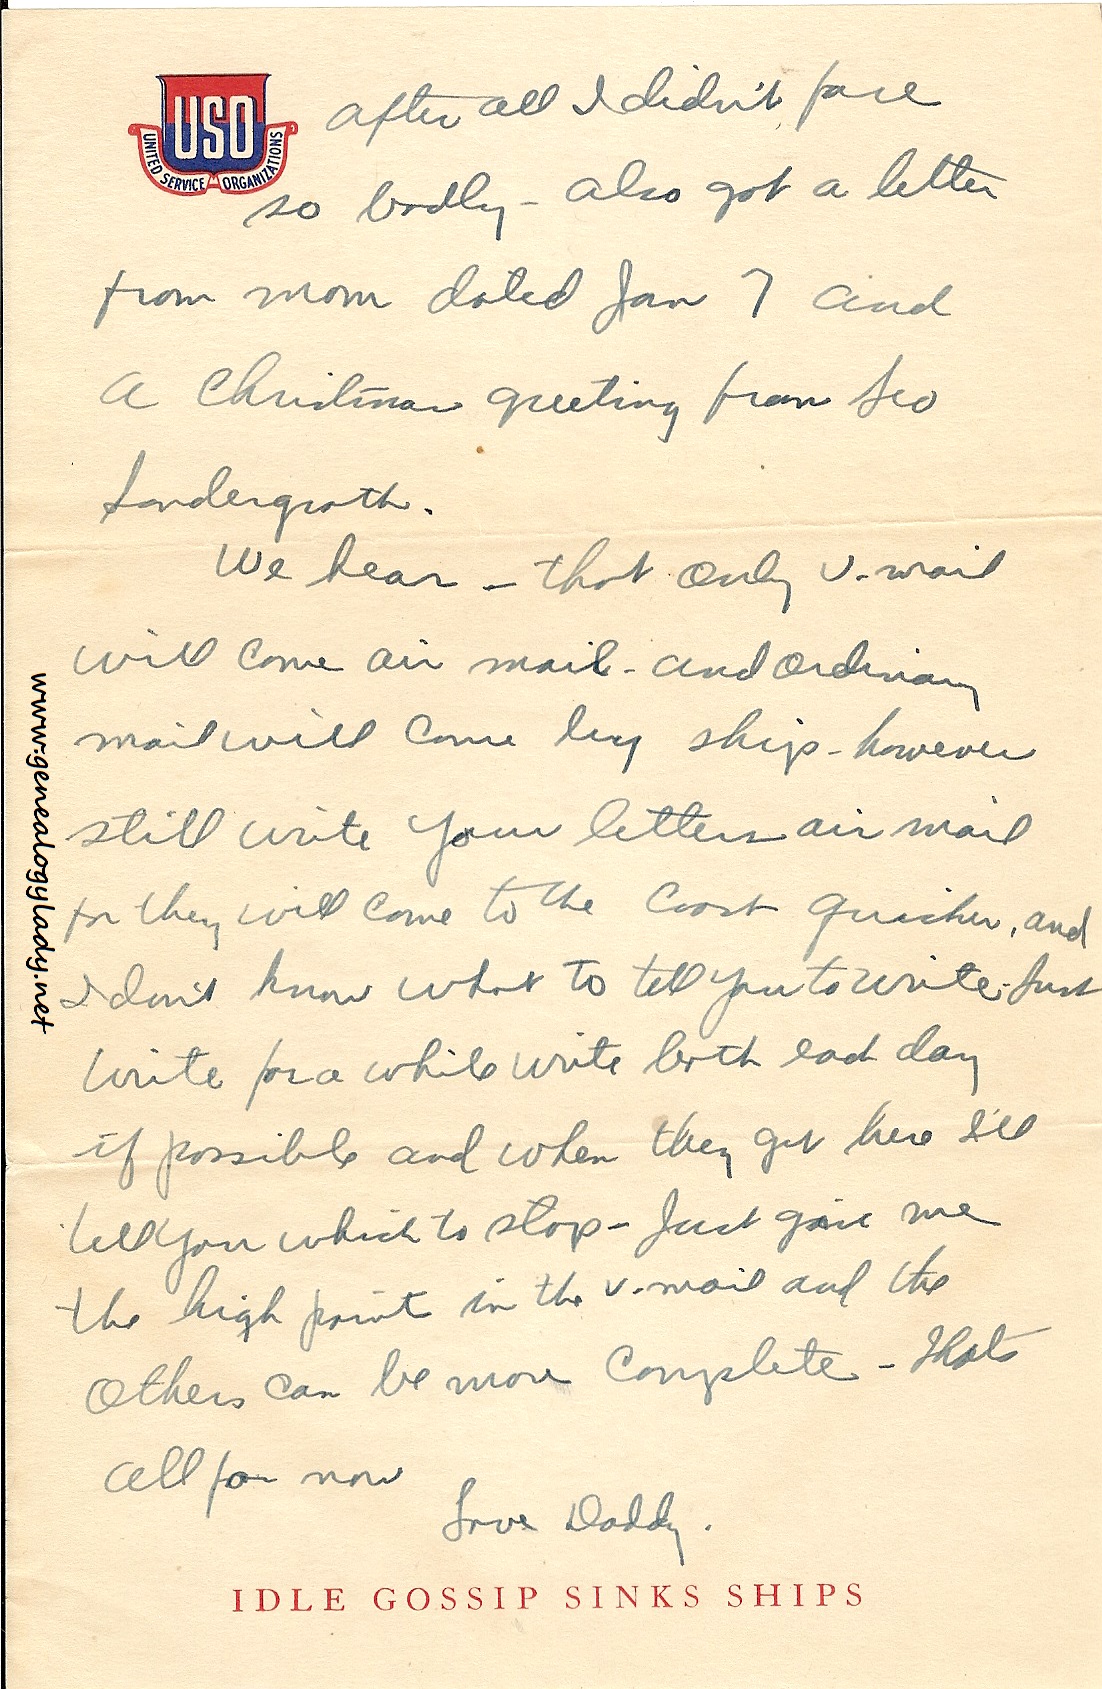 USO
UNITED SERVICE ORGANIZATIONS
after all I didn't fare
so badly - also got a letter
from mom dated Jan 7 and
a Christmas greeting from Leo
Landergroth.
We hear - that only V-mail
will come air mail - and ordinary
mail will come by ship - however
still write your letters air mail
for they will come to the coast quicker, and
I don't know what to tell you to write - Just
write for a while write both each day
if possible and when they get here I'll
tell you which to stop - Just give me
the high point in the v-mail and the
others can be more complete - Thats
all for now
Love Daddy.
IDLE GOSSIP SINKS SHIPS
www.genealogylady.net